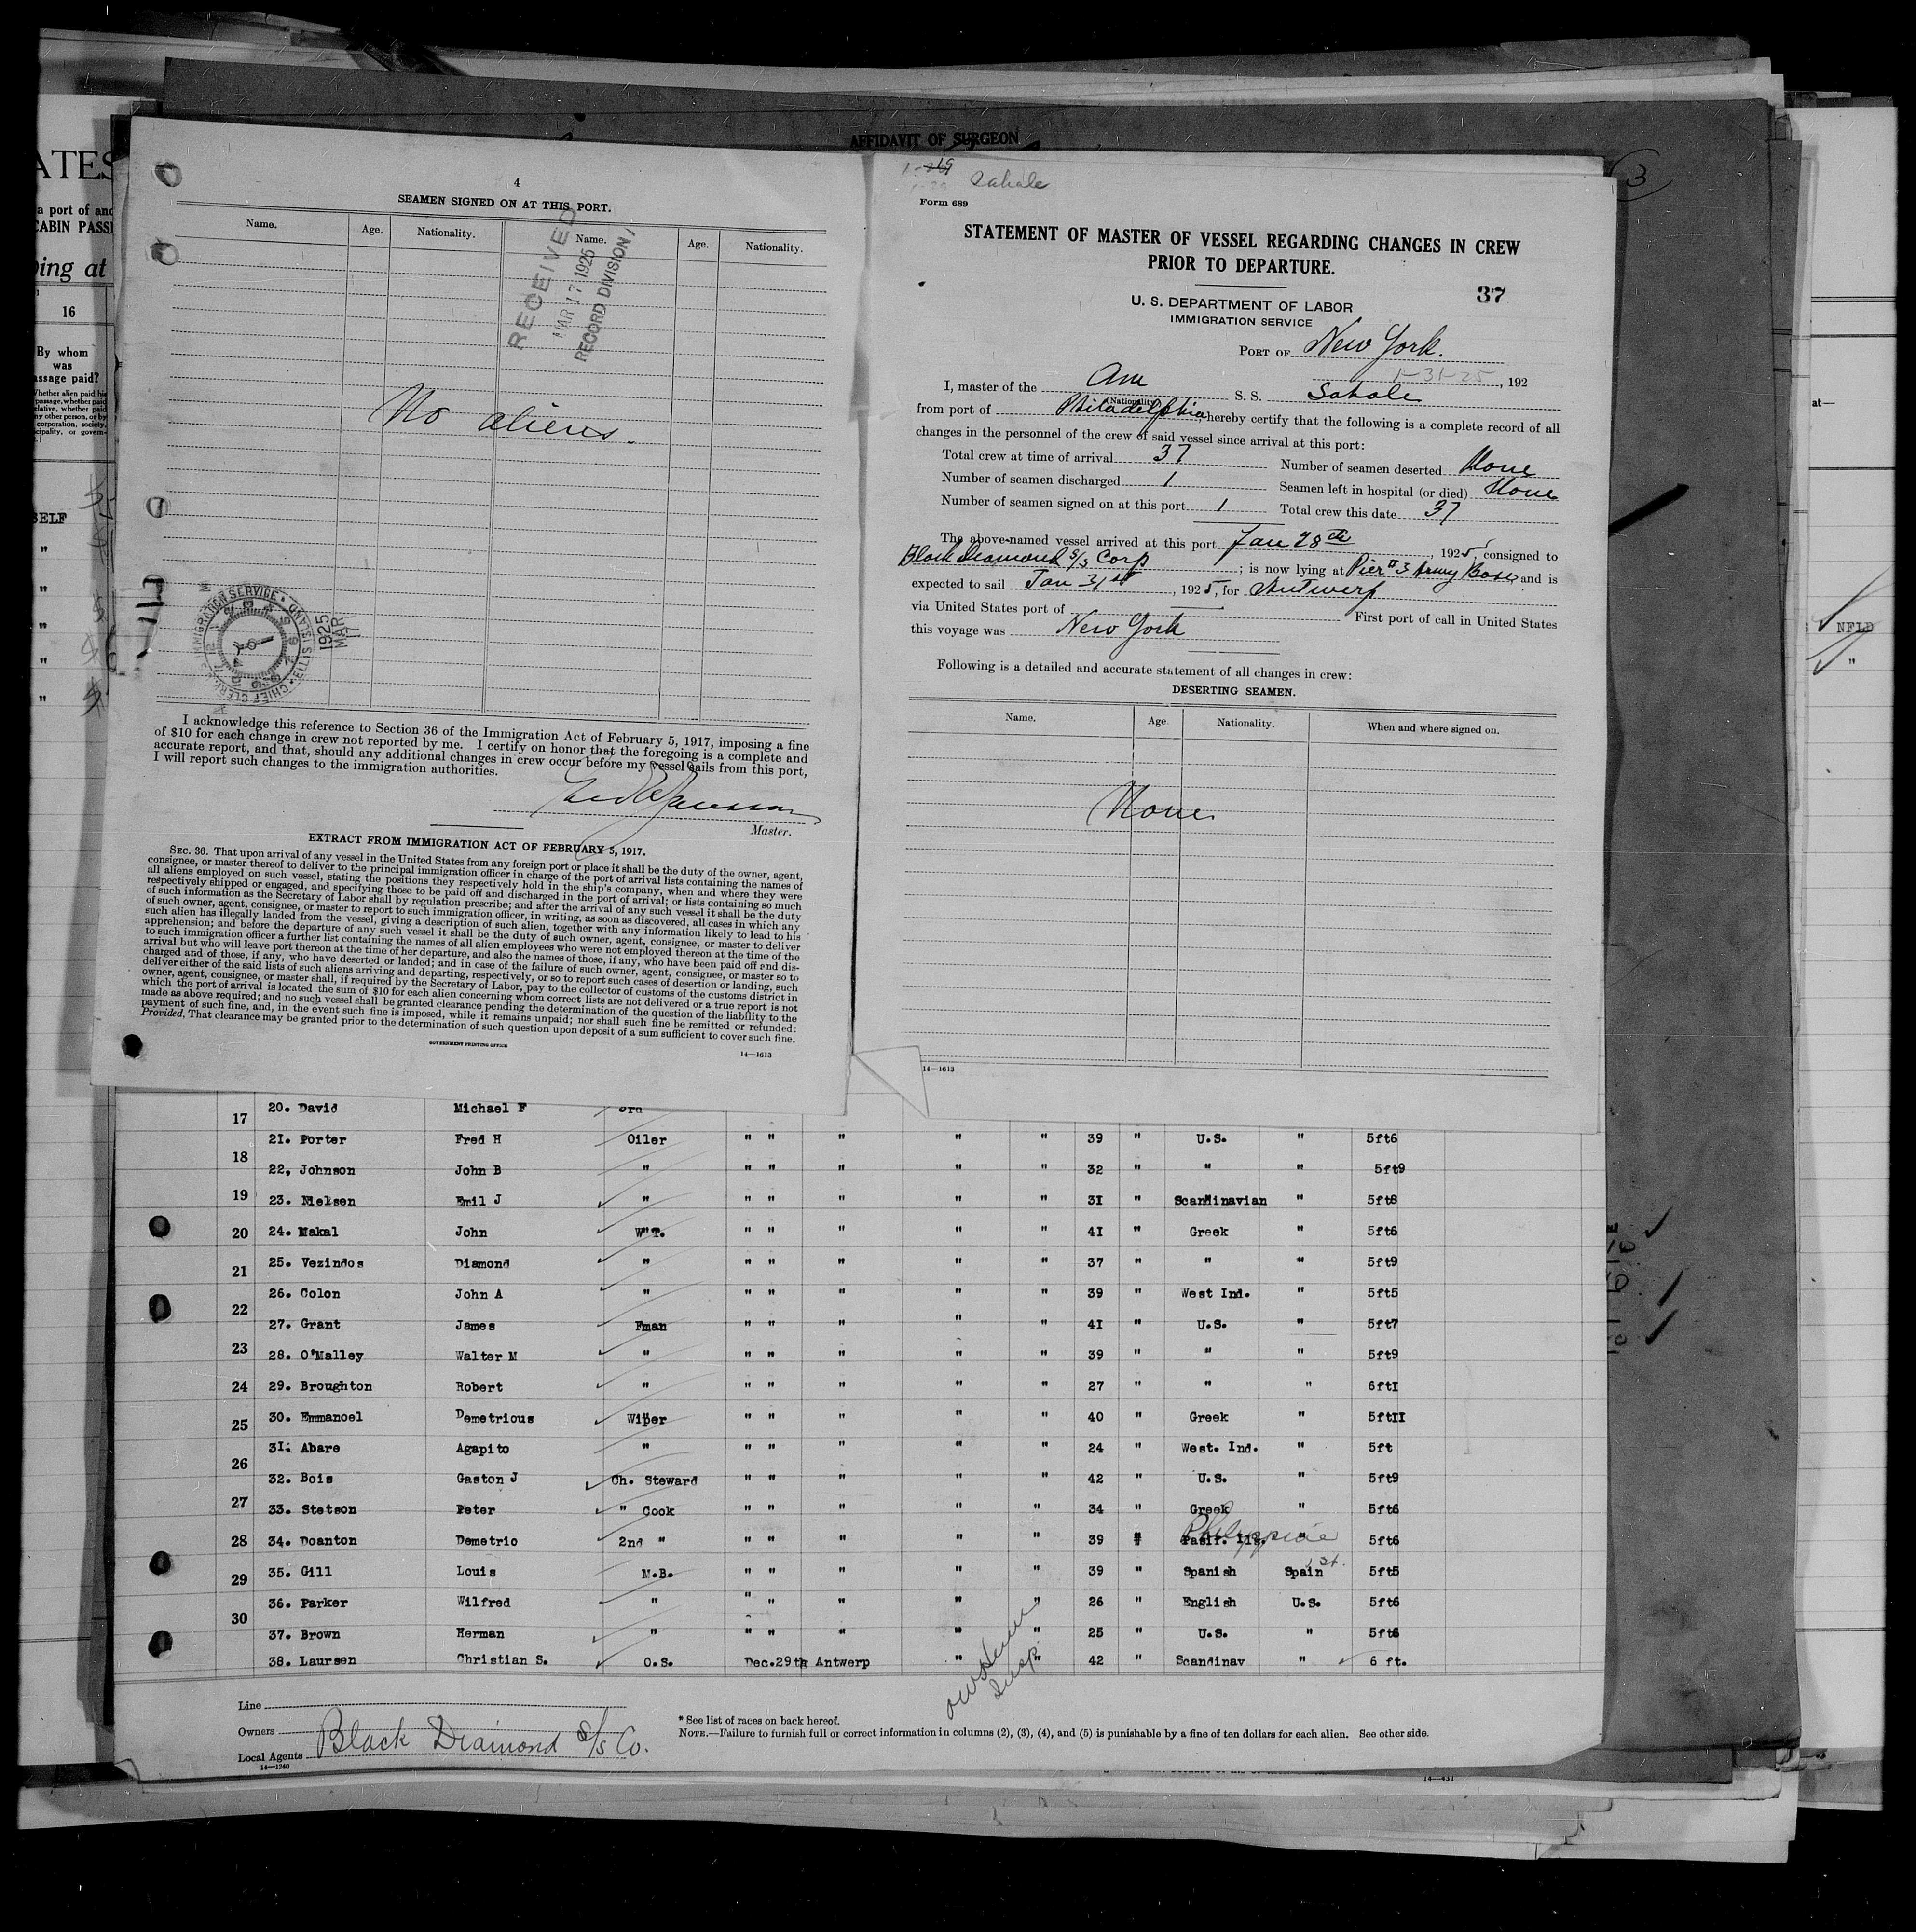 AFFIDAVIT OF SURGEON
ATES
a port of and
CABIN PASS
ing at
16
By whom
was
assage paid?
SELF
"
"
"
"
"
4
SEAMEN SIGNED ON AT THIS PORT.
Name. Age. Nationality. Name. Age. Nationality.
RECEIVED
MAR 17 1925
RECORD DIVISION
No aliens.
IMMIGRATION SERVICE
CHIEF CLERK
ELLIS ISLAND
1925
MAR
17
I acknowledge this reference to Section 36 of the Immigration Act of February 5, 1917, imposing a fine
of $10 for each change in crew not reported by me. I certify on honor that the foregoing is a complete and
accurate report, and that, should any additional changes in crew occur before my vessel sails from this port,
I will report such changes to the immigration authorities.
Master.
EXTRACT FROM IMMIGRATION ACT OF FEBRUARY 5, 1917.
SEC. 36. That upon arrival of any vessel in the United States from any foreign port or place it shall be the duty of the owner, agent,
consignee, or master thereof to deliver to the principal immigration officer in charge of the port of arrival lists containing the names of
all aliens employed on such vessel, stating the positions they respectively hold in the ship's company, when and where they were
respectively shipped or engaged, and specifying those to be paid off and discharged in the port of arrival; or lists containing so much
of such information as the Secretary of Labor shall by regulation prescribe; and after the arrival of any such vessel it shall be the duty
of such owner, agent, consignee, or master to report to such immigration officer, in writing, as soon as discovered, all cases in which any
such alien has illegally landed from the vessel, giving a description of such alien, together with any information likely to lead to his
apprehension; and before the departure of any such vessel it shall be the duty of such owner, agent, consignee, or master to deliver
to such immigration officer a further list containing the names of all alien employees who were not employed thereon at the time of the
arrival but who will leave port thereon at the time of her departure, and also the names of those, if any, who have been paid off and dis-
charged and of those, if any, who have deserted or landed; and in case of the failure of such owner, agent, consignee, or master so to
deliver either of the said lists of such aliens arriving and departing, respectively, or so to report such cases of desertion or landing, such
owner, agent, consignee, or master shall, if required by the Secretary of Labor, pay to the collector of customs of the customs district in
which the port of arrival is located the sum of $10 for each alien concerning whom correct lists are not delivered or a true report is not
made as above required; and no such vessel shall be granted clearance pending the determination of the question of the liability to the
payment of such fine, and, in the event such fine is imposed, while it remains unpaid; nor shall such fine be remitted or refunded:
Provided, That clearance may be granted prior to the determination of such question upon deposit of a sum sufficient to cover such fine.
GOVERNMENT PRINTING OFFICE
14—1613
Sahale
Form 689
STATEMENT OF MASTER OF VESSEL REGARDING CHANGES IN CREW
PRIOR TO DEPARTURE.
37
U. S. DEPARTMENT OF LABOR
IMMIGRATION SERVICE
PORT OF New York.
1-31-25, 192
I, master of the Am S. S. Sahale
(Nationality)
from port of Philadelphia, hereby certify that the following is a complete record of all
changes in the personnel of the crew of said vessel since arrival at this port:
Total crew at time of arrival 37 Number of seamen deserted None
Number of seamen discharged 1 Seamen left in hospital (or died) None
Number of seamen signed on at this port 1 Total crew this date 37
The above-named vessel arrived at this port Jan 28th, 1925, consigned to
Black Diamond S/S Corp; is now lying at Pier #3 Army Base and is
expected to sail Jan 31st, 1925, for Antwerp
via United States port of First port of call in United States
this voyage was New York
Following is a detailed and accurate statement of all changes in crew:
DESERTING SEAMEN.
Name. Age. Nationality. When and where signed on.
None
14—1613
3
at—
NFLD
"
17 20. David Michael F 3rd
21. Porter Fred H Oiler " " " " " 39 " U.S. " 5ft6
18 22, Johnson John B " " " " " " 32 " " " 5ft9
19 23. Nielsen Emil J " " " " " " 31 " Scandinavian " 5ft8
20 24. Makal John W.T. " " " " " 41 " Greek " 5ft6
21 25. Vezindos Diamond " " " " " " 37 " " " 5ft9
26. Colon John A " " " " " " 39 " West Ind. " 5ft5
22 27. Grant James Fman " " " " " 41 " U.S. " 5ft7
23 28. O'Malley Walter M " " " " " " 39 " " " 5ft9
24 29. Broughton Robert " " " " " " 27 " " " 6ft1
25 30. Emmanoel Demetrious Wiper " " " " " 40 " Greek " 5ft11
31. Abare Agapito " " " " " " 24 " West. Ind. " 5ft
26 32. Bois Gaston J Ch. Steward " " " " " 42 " U.S. " 5ft9
27 33. Stetson Peter " Cook " " " " " 34 " Greek " 5ft6
28 34. Doanton Demetrio 2nd " " " " " " 39 " Pasif. Ils. Philippine " 5ft6
29 35. Gill Louis M.B. " " " " " 39 " Spanish Spain 5ft5
36. Parker Wilfred " " " " " " 26 " English U.S. 5ft6
30 37. Brown Herman " " " " " " 25 " U.S. " 5ft6
38. Laursen Christian S. O.S. Dec.29th Antwerp " " 42 " Scandinav " 6 ft.
Insp.
Line
Owners
Black Diamond S/S Co.
Local Agents
14—1240
* See list of races on back hereof.
NOTE.—Failure to furnish full or correct information in columns (2), (3), (4), and (5) is punishable by a fine of ten dollars for each alien. See other side.
14—431